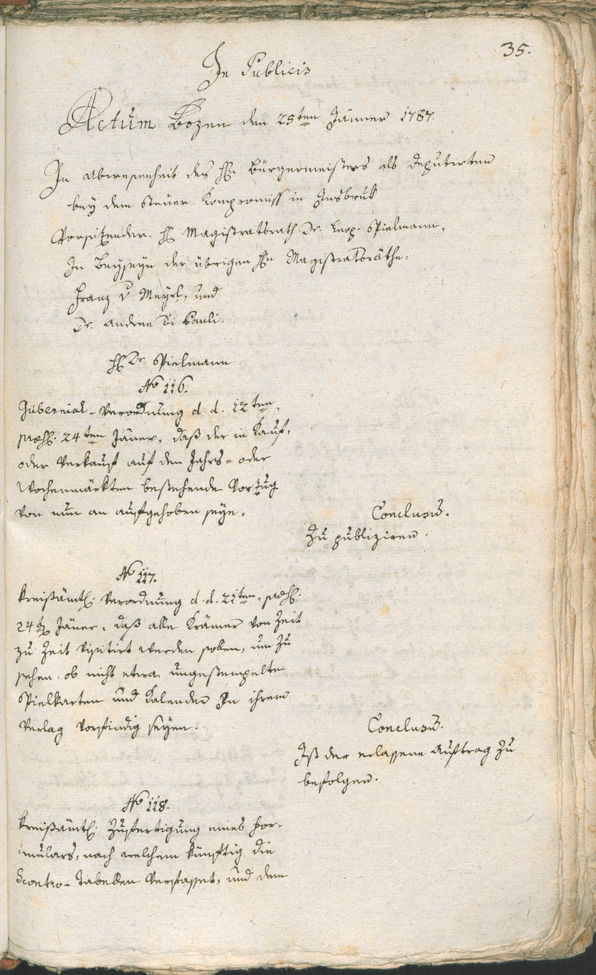 35.
In Publicis
Actum Bozen den 25ten Jänner 1787.
In Abwesenheit des H: Bürgermeisters als Deputirten
bey dem Steuer Kompromiss in Insbruk
Vorsitzender. H: Magistratsrath Dr. Leop. Spielmann.
In Beyseyn der übrigen H: Magistratsräthe.
Franz v Mayrl, und
Dr. Andree di Pauli.
H: Dr. Spielmann
No 116.
Guberniak-Verordnung d. d. 12ten,
præs: 24ten Jäner, daß der in Kauf,
oder Verkauf auf den Jahrs- oder
Wochenmärkten bestehende Vorzug
von nun an aufgehoben seye.
Conclusum.
Zu publiziren.
No 117.
Kreißämtl: Verordnung d. d. 21ten, præs:
24ten Jäner, daß alle Krämer von Zeit
zu Zeit visitirt werden sollen, um zu
sehen, ob nicht etwa ungestempelte
Spielkarten und Kalender in ihrem
Verlag vorfindig seyen.
Conclusum.
Ist der erlassene Auftrag zu
befolgen.
No 118.
Kreißämtl: Zufertigung eines For-
mulars, nach welchem künftig die
Scontro-Tabellen verfasset, und dem